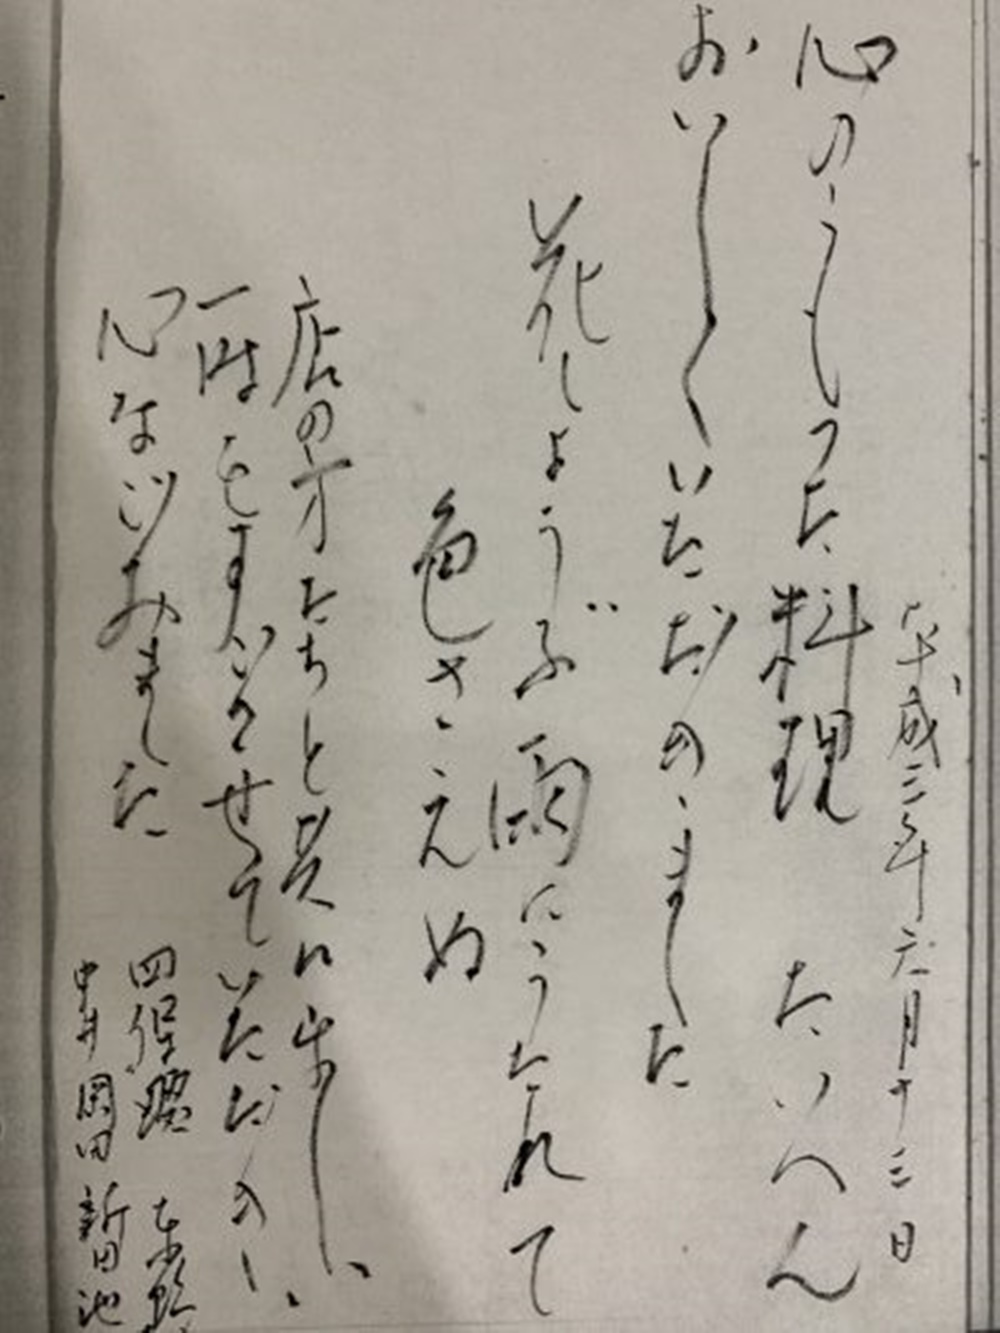 平成三年六月十三日
心のこもった料理 たいへん
おいしくいただきました
花しょうぶ雨にうたれて
色さえぬ
店の方たちと共に楽しい
一時をすごさせていただき、
心なごみました
四保
中井 岡田 新田 池